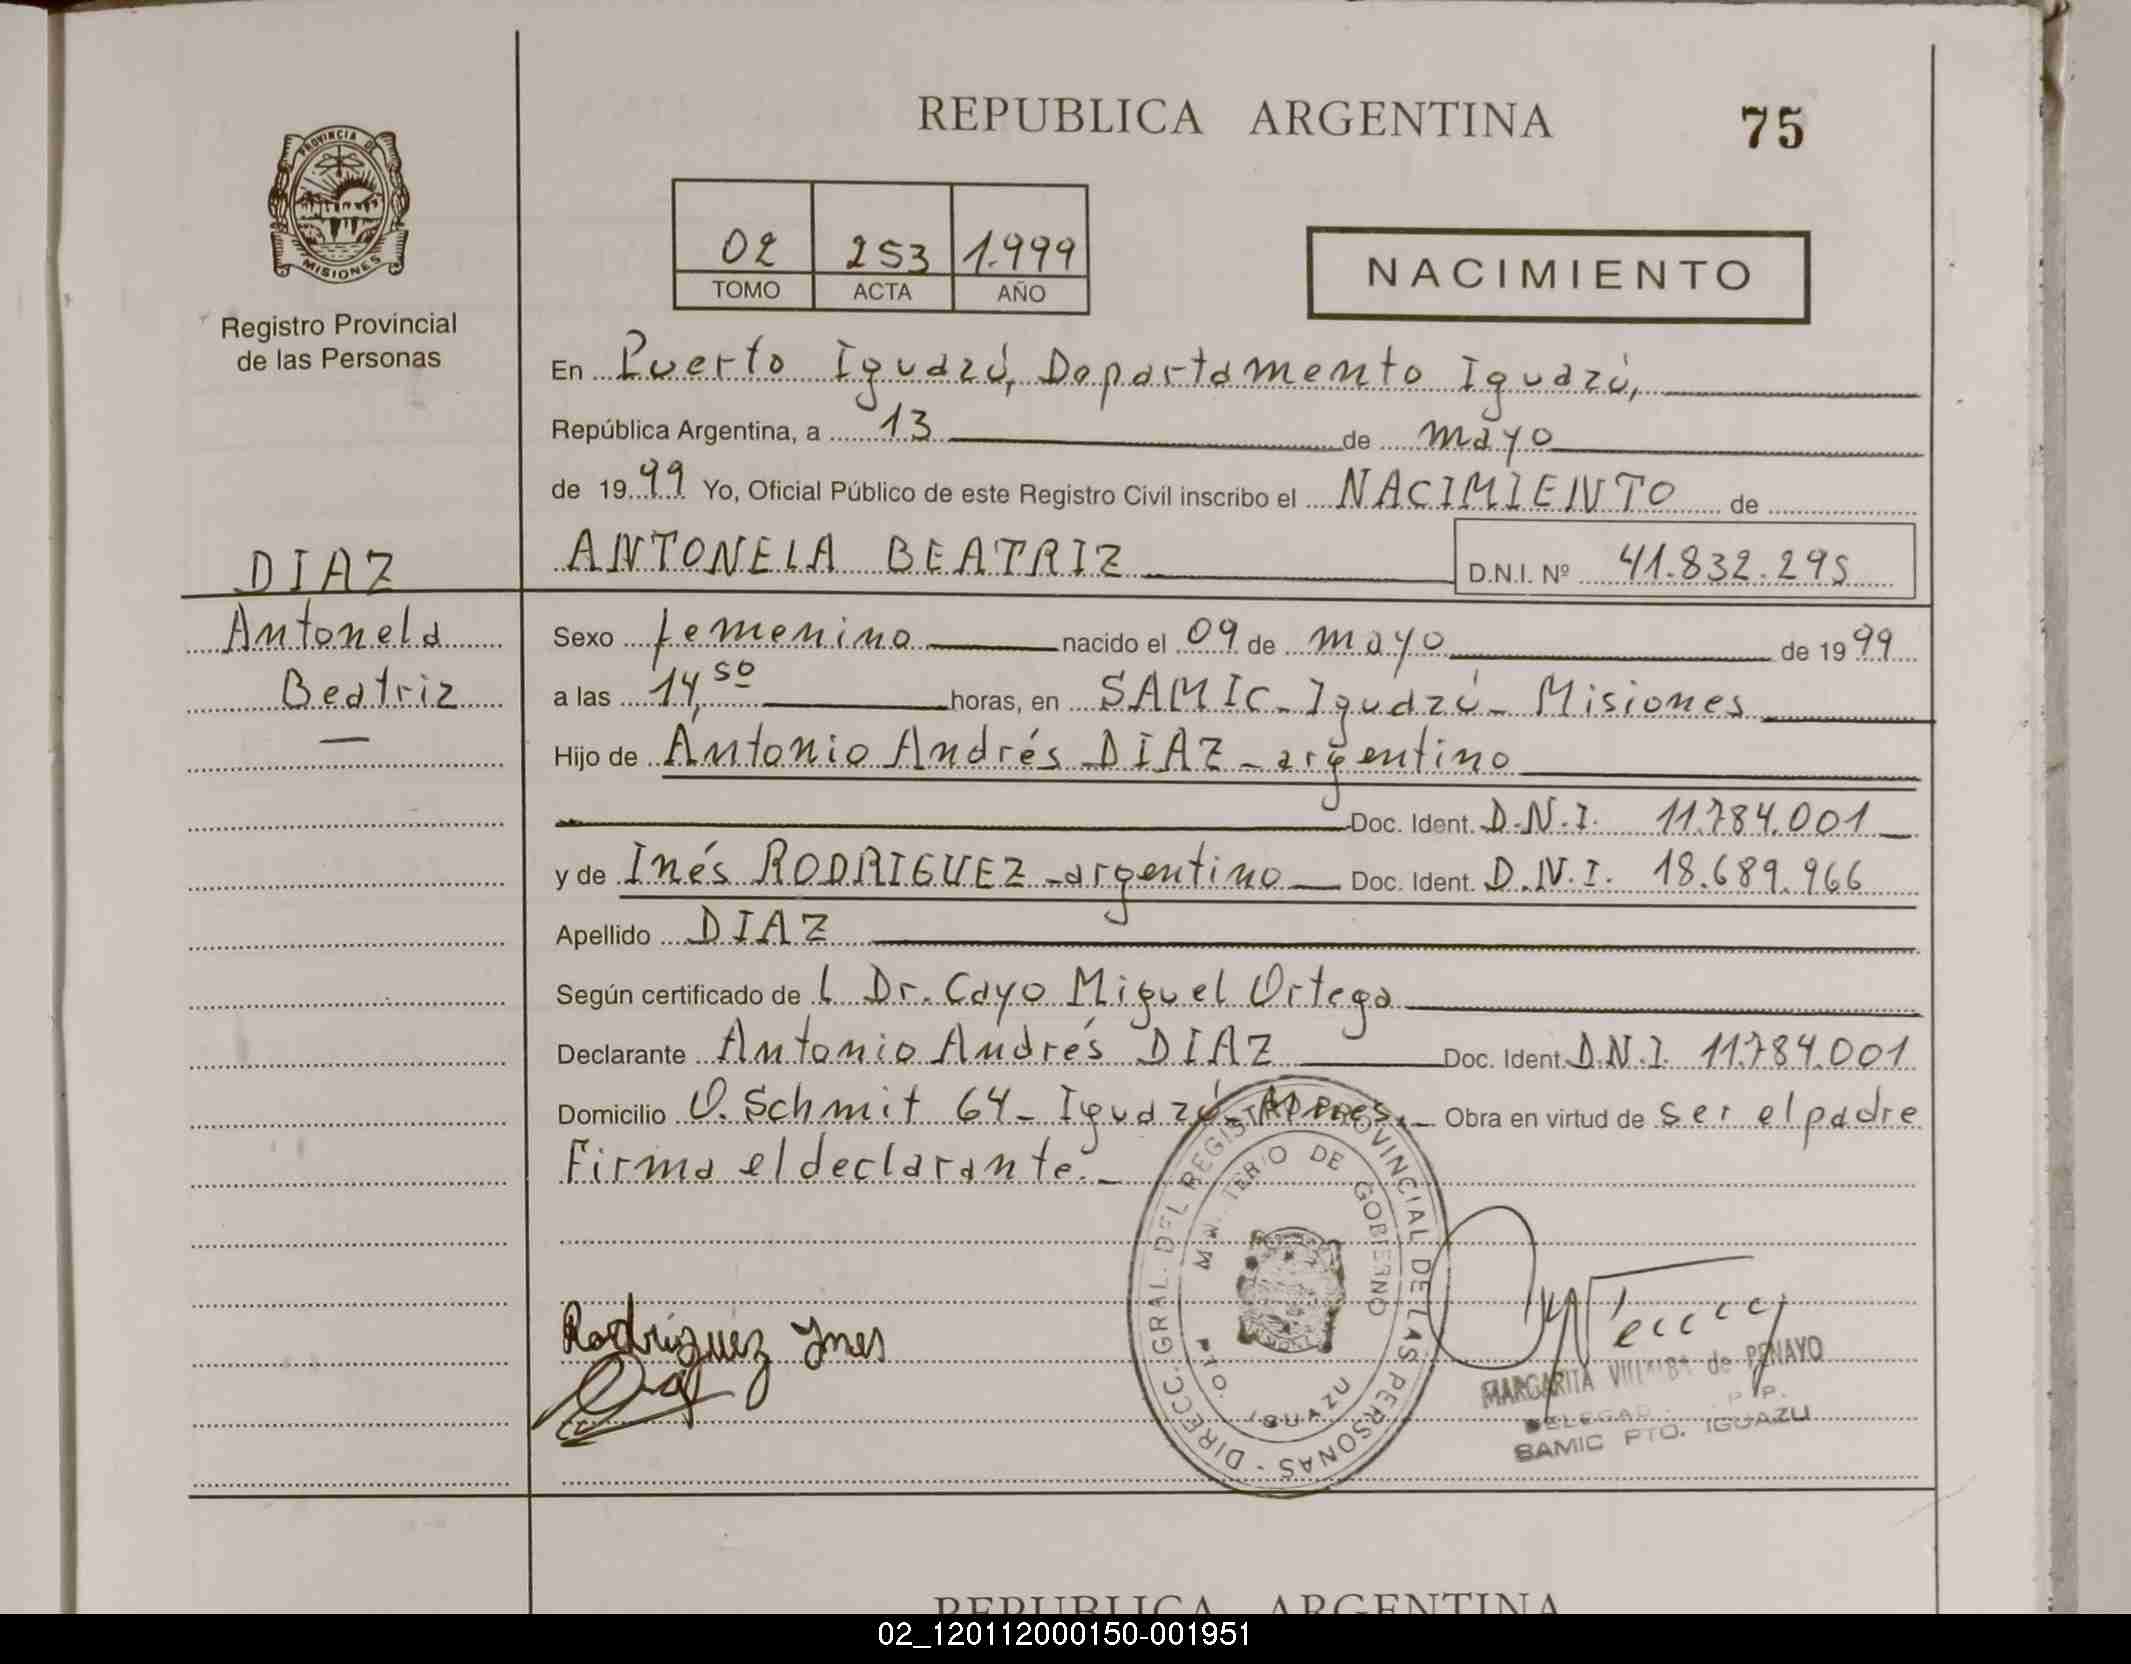 REPUBLICA ARGENTINA
75
PROVINCIA DE
MISIONES
Registro Provincial
de las Personas
02 253 1.999
TOMO ACTA AÑO
NACIMIENTO
En Puerto Iguazú, Departamento Iguazú,
República Argentina, a 13 de mayo
de 1999 Yo, Oficial Público de este Registro Civil inscribo el NACIMIENTO de
ANTONELA BEATRIZ D.N.I. Nº 41.832.295
DIAZ
Antonela
Beatriz
Sexo femenino nacido el 09 de mayo de 1999
a las 14,50 horas, en SAMIC - Iguazú - Misiones
Hijo de Antonio Andrés DIAZ - argentino
Doc. Ident. D.N.I. 11.784.001
y de Inés RODRIGUEZ - argentino Doc. Ident. D.N.I. 18.689.966
Apellido DIAZ
Según certificado de l Dr. Cayo Miguel Ortega
Declarante Antonio Andrés DIAZ Doc. Ident. D.N.I. 11.784.001
Domicilio O. Schmit 64 - Iguazú, Mnes. Obra en virtud de ser el padre
Firma el declarante.
DIRECC. GRAL. DEL REGISTRO PROVINCIAL DE LAS PERSONAS -
MINISTERIO DE GOBIERNO
PTO. IGUAZU
Rodriguez Ines
MARGARITA VILLALBA de PENAYO
SAMIC PTO. IGUAZU
REPUBLICA ARGENTINA
02_120112000150-001951